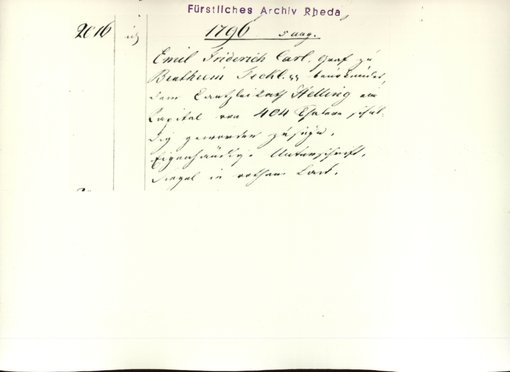 Fürstliches Archiv Rheda
2016
1796 5 aug.
Emil Friderich Carl, Graf zu
Bentheim Teckl. pp beurkundet,
dem Canzleirath Helling ein
Capital von 404 Thalern schul-
dig geworden zu seyn.
Eigenhändige Unterschrift.
Siegel in rothem Lack.